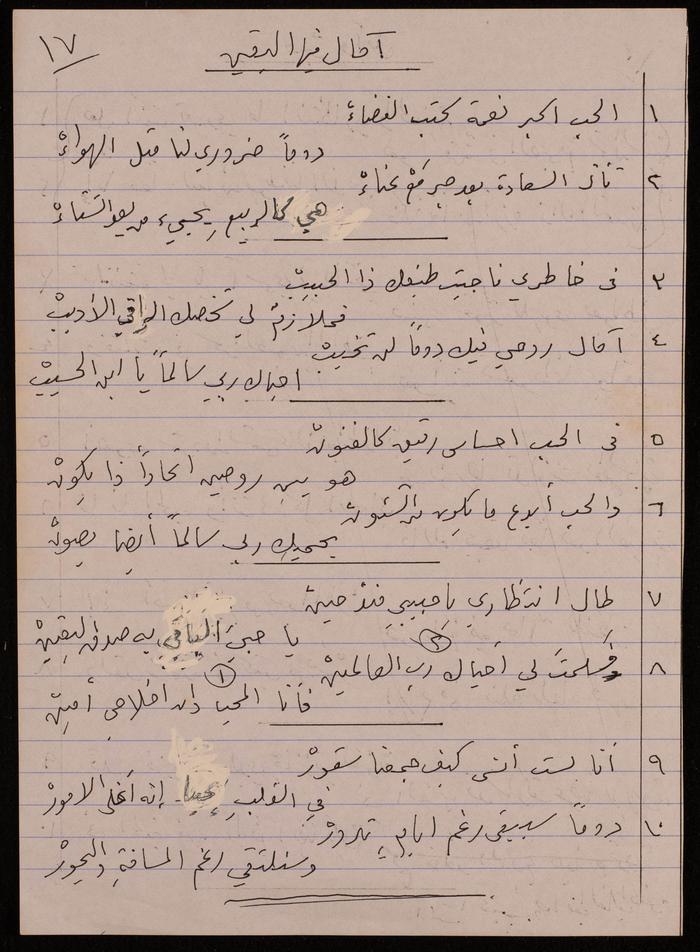 ١٧
آمال فيها اليقين
١ الحب اكبر نعمة كتب القضاءْ
دوماً ضروري لنا مثل الهواءْ
٢ تأتي السعادة بعد صبر مع عناءْ
هي كالربيع يجيء من بعد الشتاءْ
٣ في خاطري ناجيت طيفك ذا الحبيبْ
فملازمٌ لي شخصك الراقي الأديبْ
٤ آمال روحي فيك دوماً لن تخيبْ
احياك ربي سالماً يا ابن الحسيبْ
٥ في الحب احساس رقيق كالفنونْ
هو بين روحين اتحاداً ذا يكونْ
٦ والحب أبدع ما يكون من الشئونْ
يحميك ربي سالماً أيضا يصونْ
٧ طال انتظاري يا حبيبي منذ حينْ
يا حبيَ الباقي به صدق اليقينْ
٨ فسلمتَ لي أحياك رب العالمينْ ٢
فأنا المحب وان اخلاصي أمينْ ١
٩ أنا لست أنسى كيف جمعنا سفورْ
في القلبِ يحيا إنه أغلى الامورْ
١٠ دوماً سيبقى رغم ايامٍ تدورْ
وسنلتقي رغم المسافةِ والبحورْ